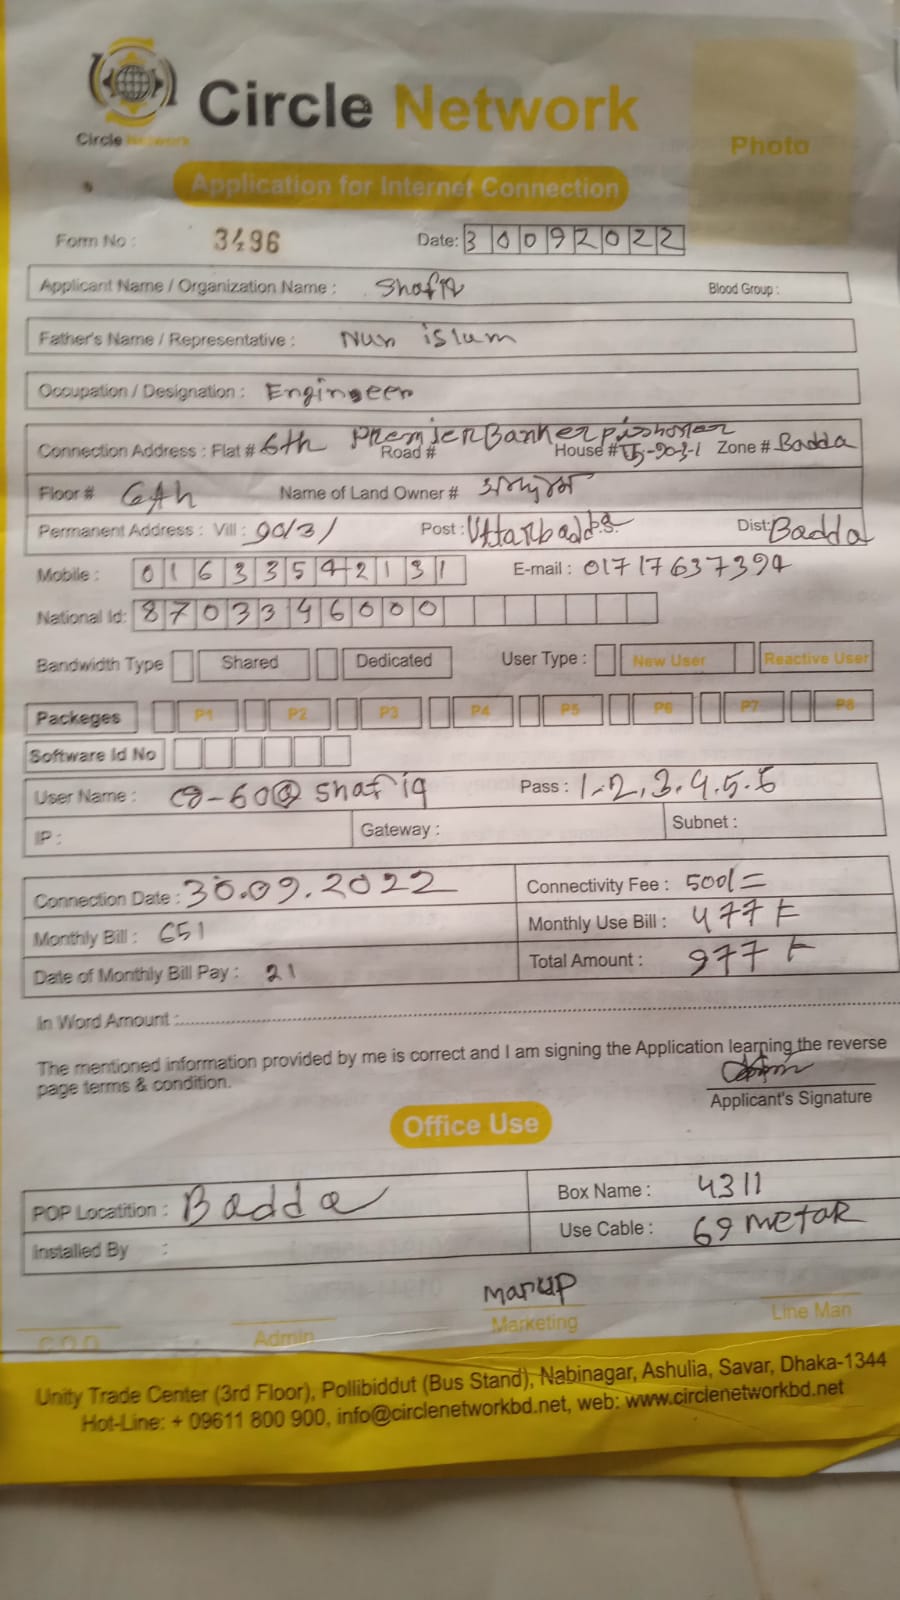 Circle Network
Circle Network
Photo
Application for Internet Connection
Form No : 3496 Date: 30092022
Applicant Name / Organization Name : Shafiq Blood Group :
Father's Name / Representative : Nur islam
Occupation / Designation : Engineer
Connection Address : Flat # 6th Premier Banker Road # House # Zone # Badda
Floor # 6th Name of Land Owner #
Permanent Address : Vill : 90/3/ Post : Uttarbadda Dist: Badda
Mobile : 01633542131 E-mail : 01717637394
National Id: 8703346000
Bandwidth Type Shared Dedicated User Type : New User Reactive User
Packeges P1 P2 P3 P4 P5 P6 P7 P8
Software Id No
User Name : c8-60@shafiq Pass : 1.2.3.4.5.6
IP : Gateway : Subnet :
Connection Date : 30.09.2022 Connectivity Fee : 500/=
Monthly Bill : 651 Monthly Use Bill : 477 ৳
Date of Monthly Bill Pay : 21 Total Amount : 977 ৳
In Word Amount :
The mentioned information provided by me is correct and I am signing the Application learning the reverse
page terms & condition.
Applicant's Signature
Office Use
POP Locatition : Badda Box Name : 4311
Installed By : Use Cable : 69 metar
Marup
C.O.O Admin Marketing Line Man
Unity Trade Center (3rd Floor), Pollibiddut (Bus Stand), Nabinagar, Ashulia, Savar, Dhaka-1344
Hot-Line: + 09611 800 900, info@circlenetworkbd.net, web: www.circlenetworkbd.net